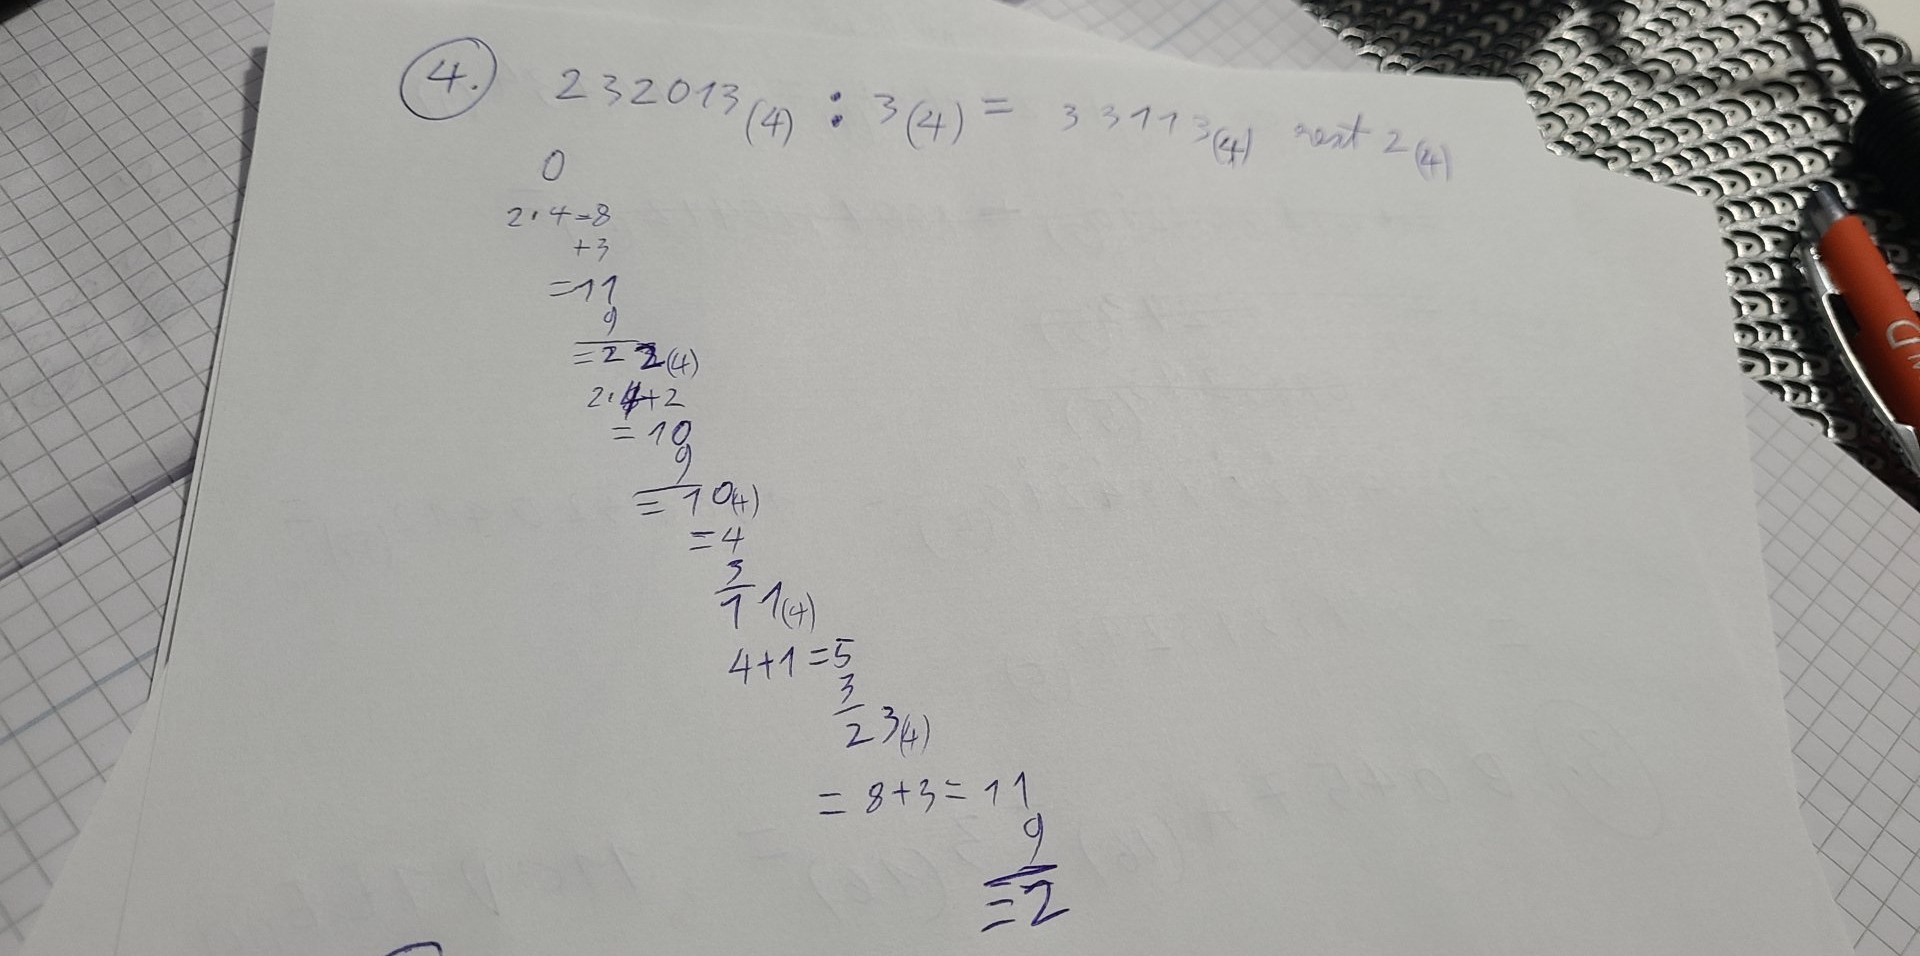 4. 232013(4) : 3(4) = 33113(4) rest 2(4)
0
2·4=8
+3
=11
9
=2 2(4)
2·4+2
=10
9
=10(4)
=4
3
1 1(4)
4+1=5
3
2 3(4)
=8+3=11
9
=2